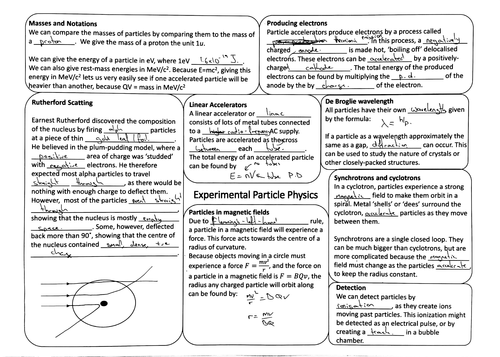 Masses and Notations
We can compare the masses of particles by comparing them to the mass of
a proton. We give the mass of a proton the unit 1u.
We can give the energy of a particle in eV, where 1eV 1.6x10⁻¹⁹ J.
We can also give rest-mass energies in MeV/c². Because E=mc², giving this
energy in MeV/c² lets us very easily see if one accelerated particle will be
heavier than another, because QV = mass in MeV/c²
Producing electrons
Particle accelerators produce electrons by a process called
thermionic emission. In this process, a negatively
charged is made hot, 'boiling off' delocalised
electrons. These electrons can be accelerated by a positively-
charged cathode. The total energy of the produced
electrons can be found by multiplying the p.d. of the
anode by the by charge of the electron.
Rutherford Scattering
Earnest Rutherford discovered the composition
of the nucleus by firing alpha particles
at a piece of thin gold leaf foil.
He believed in the plum-pudding model, where a
positive area of charge was 'studded'
with negative electrons. He therefore
expected most alpha particles to travel
straight through, as there would be
nothing with enough charge to deflect them.
However, most of the particles went straight
through
showing that the nucleus is mostly empty
space. Some, however, deflected
back more than 90°, showing that the centre of
the nucleus contained small, dense, +ve
charge
Linear Accelerators
A linear accelerator or linac
consists of lots of metal tubes connected
to a higher radio-frequency AC supply.
Particles are accelerated as they cross
between each tube.
The total energy of an accelerated particle
can be found by
E = nV
P.D
De Broglie wavelength
All particles have their own wavelength given
by the formula:
λ = h/p
If a particle as a wavelength approximately the
same as a gap, diffraction can occur. This
can be used to study the nature of crystals or
other closely-packed structures.
Experimental Particle Physics
Particles in magnetic fields
Due to Fleming's left-hand rule,
a particle in a magnetic field will experience a
force. This force acts towards the centre of a
radius of curvature.
Because objects moving in a circle must
experience a force F = mv²/r, and the force on
a particle in a magnetic field is F = BQv, the
radius any charged particle will orbit along
can be found by:
mv²/r = BQv
r = mv/BQ
Synchrotrons and cyclotrons
In a cyclotron, particles experience a strong
magnetic field to make them orbit in a
spiral. Metal 'shells' or 'dees' surround the
cyclotron, accelerate particles as they move
between them.
Synchrotrons are a single closed loop. They
can be much bigger than cyclotrons, but are
more complicated because the magnetic
field must change as the particles accelerate
to keep the radius constant.
Detection
We can detect particles by
ionisation, as they create ions
moving past particles. This ionization might
be detected as an electrical pulse, or by
creating a track in a bubble
chamber.